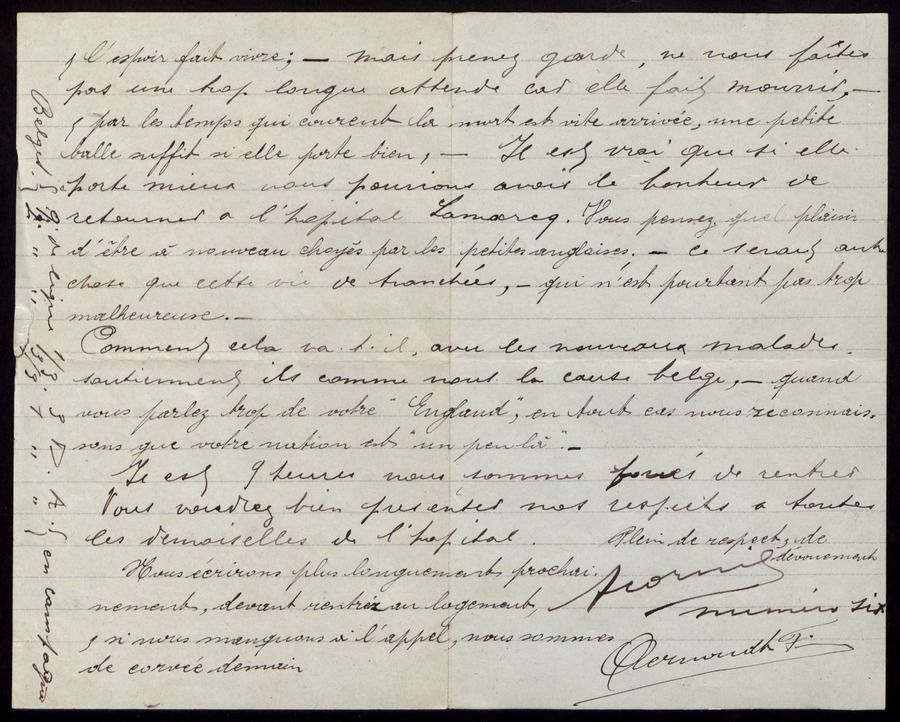 , l'espoir fait vivre; — mais prenez garde, ne nous faîtes
pas une trop longue attende car elle fait mourir, —
, par les temps qui courent la mort est vite arrivée, une petite
balle suffit si elle porte bien, — Il est vrai que si elle
porte mieux nous pourions avoir le bonheur de
retourner a l'hopital Lamarcq. Vous pensez quel plaisir
d'être à nouveau choyés par les petites anglaises. — ce serait autre
chose que cette vie de tranchées, — qui n'est pourtant pas trop
malheureuse. —
Comment cela va-t-il, avec les nouveaux malades,
soutiennent ils comme nous la cause belge, — quand
vous parlez trop de votre "England", en tout cas nous reconnais-
sons que votre nation est "un peu là". —
Il est 9 heures nous sommes forcés de rentrer
Vous voudrez bien présenter nos respects a toutes
les demoiselles de l'hopital. Plein de respect, de
dévouement
Nous écrirons plus longuement prochai-
nement, devant rentrer au logement,
numéro six
, si nous manquons à l'appel, nous sommes
de corvée demain
Aernoudt F.
Belges. 9 de ligne 1/3 3 D. A. en campagne
" " 3/3 " "